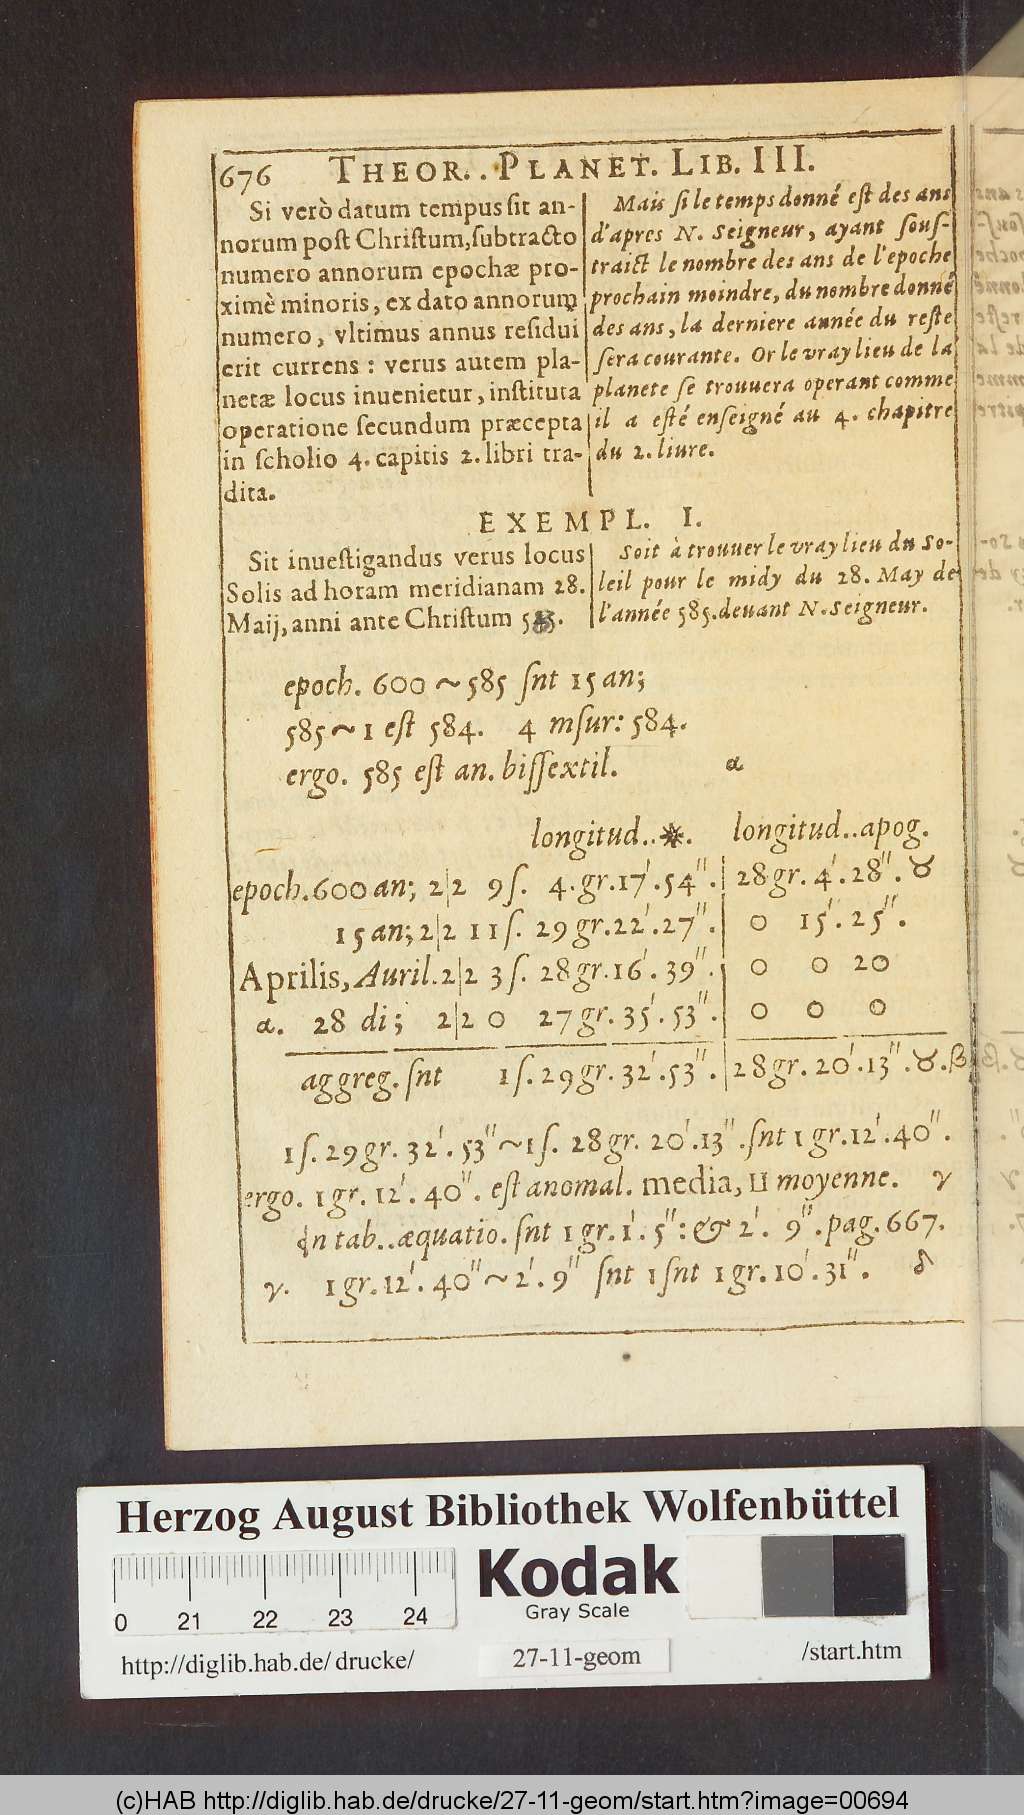 676 THEOR.. PLANET. LIB. III.
Si verò datum tempus sit an-
norum post Christum, subtracto
numero annorum epochæ pro-
ximè minoris, ex dato annorum
numero, vltimus annus residui
erit currens : verus autem pla-
netæ locus inuenietur, instituta
operatione secundum præcepta
in scholio 4. capitis 2. libri tra-
dita.
Mais si le temps donné est des ans
d'apres N. Seigneur, ayant sous-
traict le nombre des ans de l'epoche
prochain moindre, du nombre donné
des ans, la derniere année du reste
sera courante. Or le vray lieu de la
planete se trouuera operant comme
il a esté enseigné au 4. chapitre
du 2. liure.
EXEMPL. I.
Sit inuestigandus verus locus
Solis ad horam meridianam 28.
Maij, anni ante Christum
Soit à trouuer le vray lieu du So-
leil pour le midy du 28. May de
l'année 585. deuant N. Seigneur.
epoch. 600 ~ 585 snt 15 an;
585 ~ 1 est 584. 4 msur: 584.
ergo. 585 est an. bissextil. α
longitud..☀. longitud..apog.
epoch. 600 an; 2|2 9 s. 4. gr. 17'. 54''. | 28 gr. 4'. 28''. ♉
15 an; 2|2 11 s. 29 gr. 22'. 27''. | 0 15'. 25''.
Aprilis, Auril. 2|2 3 s. 28 gr. 16'. 39''. | 0 0 20
α. 28 di; 2|2 0 27 gr. 35'. 53''. | 0 0 0
aggreg. snt 1 s. 29 gr. 32'. 53''. | 28 gr. 20'. 13''. ♉. β
1 s. 29 gr. 32'. 53'' ~ 1 s. 28 gr. 20'. 13''. snt 1 gr. 12'. 40''.
ergo. 1 gr. 12'. 40''. est anomal. media, ⊔ moyenne. γ
in tab.. æquatio. snt 1 gr. 1'. 5'': & 2'. 9''. pag. 667.
γ. 1 gr. 12'. 40'' ~ 2'. 9'' snt 1 snt 1 gr. 10'. 31''. δ
Herzog August Bibliothek Wolfenbüttel
0 21 22 23 24
Kodak
Gray Scale
http://diglib.hab.de/drucke/ 27-11-geom /start.htm
(c)HAB http://diglib.hab.de/drucke/27-11-geom/start.htm?image=00694